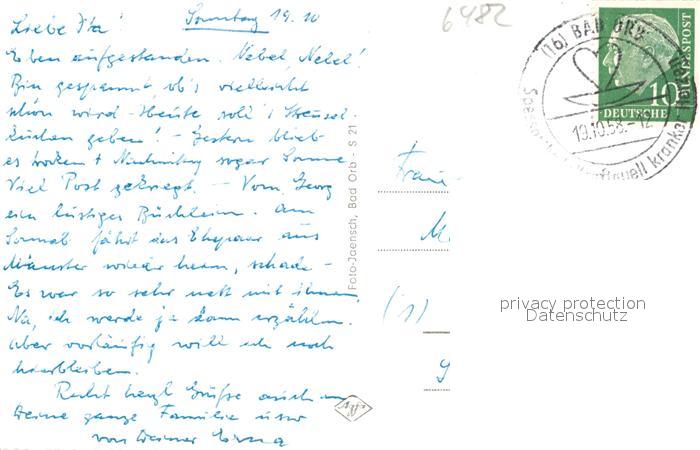 Liebe Ita! Sonntag 19.10
Eben aufgestanden. Nebel, Nebel!
Bin gespannt, ob's vielleicht
schön wird - Heute soll's Streusel-
kuchen geben! - Gestern blieb
es trocken + Nachmittag sogar Sonne
Viel Post gekriegt. - Vom Georg
ein lustiges Büchlein. Am
Sonnab. fährt das Ehepaar aus
Münster wieder heim, schade -
Es war so sehr nett mit ihnen.
Na, ich werde ja dann erzählen.
Aber vorläufig will ich noch
hierbleiben.
Recht herzl. Grüße auch an
Deine ganze Familie
von Deiner Erna
Foto-Jaensch, Bad Orb - S 21
6482
(16) BAD ORB
19.10.58.-12
10
DEUTSCHE
Frau
M
(1)
privacy protection
Datenschutz